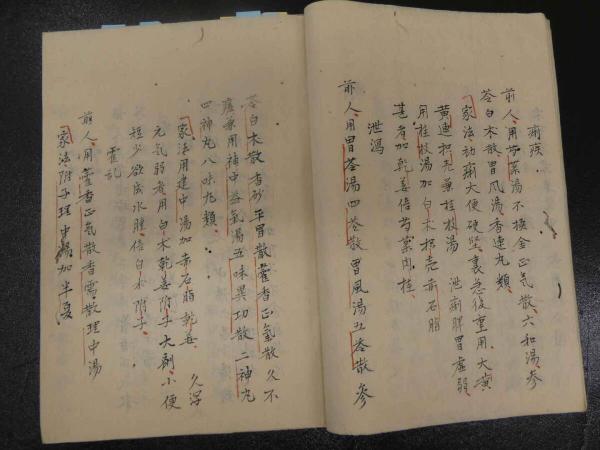 痢疾
前人用芍薬湯不換金正気散六和湯参
苓白朮散胃風湯香連丸類
家法初痢大便硬些裏急後重用大黄
黄連枳売薬桂枝湯 泄痢脾胃虚弱
用桂枝湯加白朮枳売赤石脂
甚者加乾姜倍芍薬肉桂
泄瀉
前人用胃苓湯四苓散胃風湯五苓散参
苓白朮散香砂平胃散藿香正気散久不
産兼用補中益気湯五味異功散二神丸
四神丸八味丸類
家法用建中湯加赤石脂乾姜 久瀉
元気弱者用白朮乾姜附子大剤小便
短少欲成水腫倍白朮附子
霍乱
前人用藿香正気散香薷散理中湯
家法附子理中湯加半夏